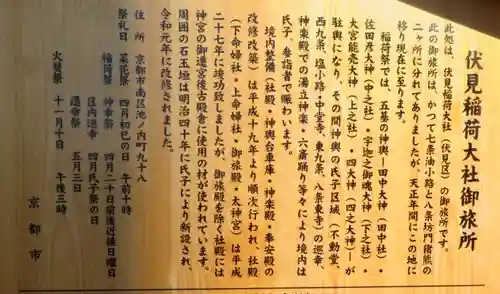 伏見稲荷大社御旅所
此処は、伏見稲荷大社（伏見区）の御旅所です。
此の御旅所は、かつて七条油小路と八条坊門猪熊の
二ヶ所に分れてありましたが、天正年間にこの地に
移り現在に至ります。
稲荷祭では、五基の神輿―田中大神（田中社）・
佐田彦大神（中之社）・宇迦之御魂大神（下之社）・
大宮能売大神（上之社）・四大神（四之大神）―が
駐輿になり、その間神輿の氏子区域（不動堂、
西九条、塩小路・中堂寺、東九条、八条東寺）の巡幸、
神楽殿での湯立神楽・六斎踊り等々により境内は
氏子、参詣者で賑わいます。
境内整備（社殿・神輿台車庫・神楽殿・奉安殿の
改修改築）は平成十九年より順次行われ、社殿
（下命婦社・上命婦社・御旅殿・太神宮）は平成
二十七年に竣功致しましたが、御旅殿を除く社殿には
神宮の御遷宮後古殿舎に使用の材が使われています。
周囲の石玉垣は明治四十年に氏子により新設され、
令和元年に改修されました。
住所 京都市南区池ノ内町九十八
祭礼日 菜花祭 四月初巳の日 午前十時
稲荷祭 神幸祭 四月二十日前後近接日曜日
区内巡幸 四月氏子祭の日
還幸祭 五月三日
火焚祭 十一月十日 午後三時
京都市